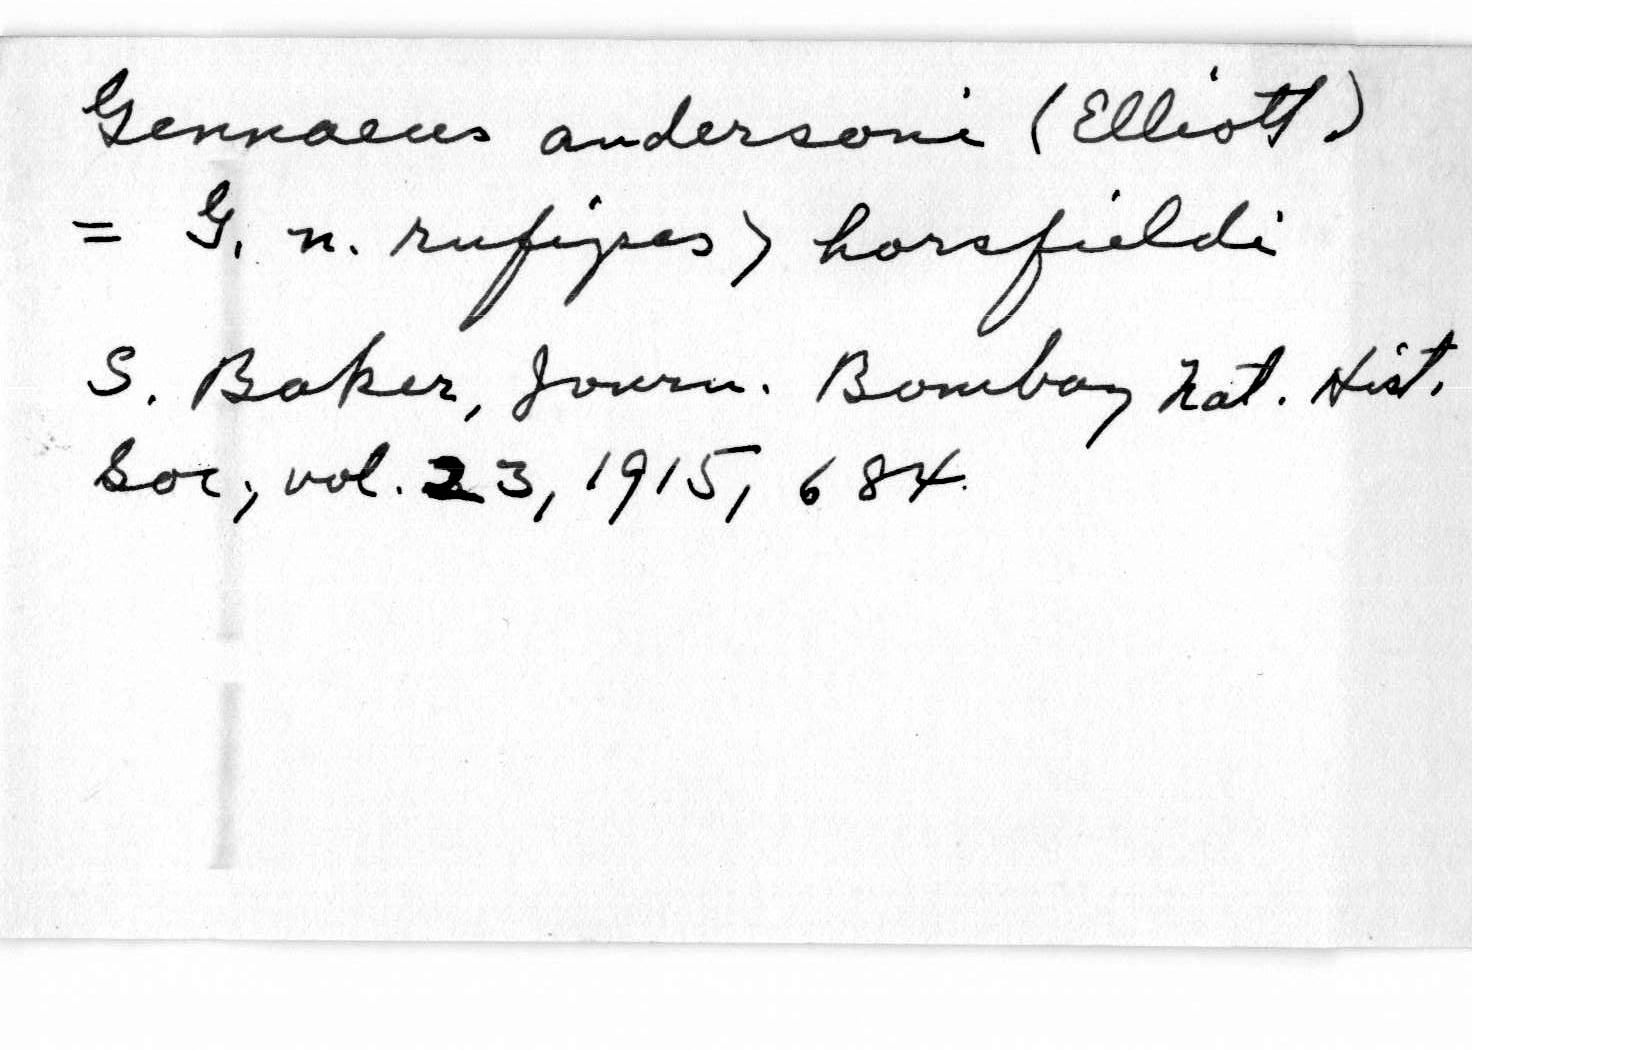 Gennaeus andersoni (Elliott)
= G. n. rufipes > horsfieldi
S. Baker, Journ. Bombay Nat. Hist.
Soc., vol. 23, 1915, 684.